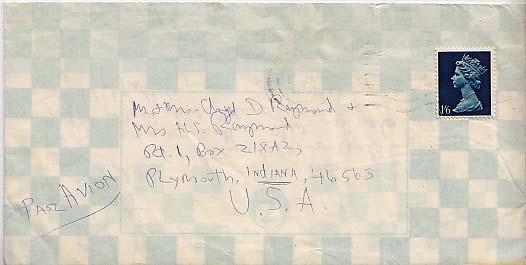 Mr & Mrs. Lloyd D. Raymond &
Mrs H. S. Raymond
Rt. 1, Box 218A2,
Plymouth, INDIANA, 46563
U.S.A.
PAR AVION
1/6